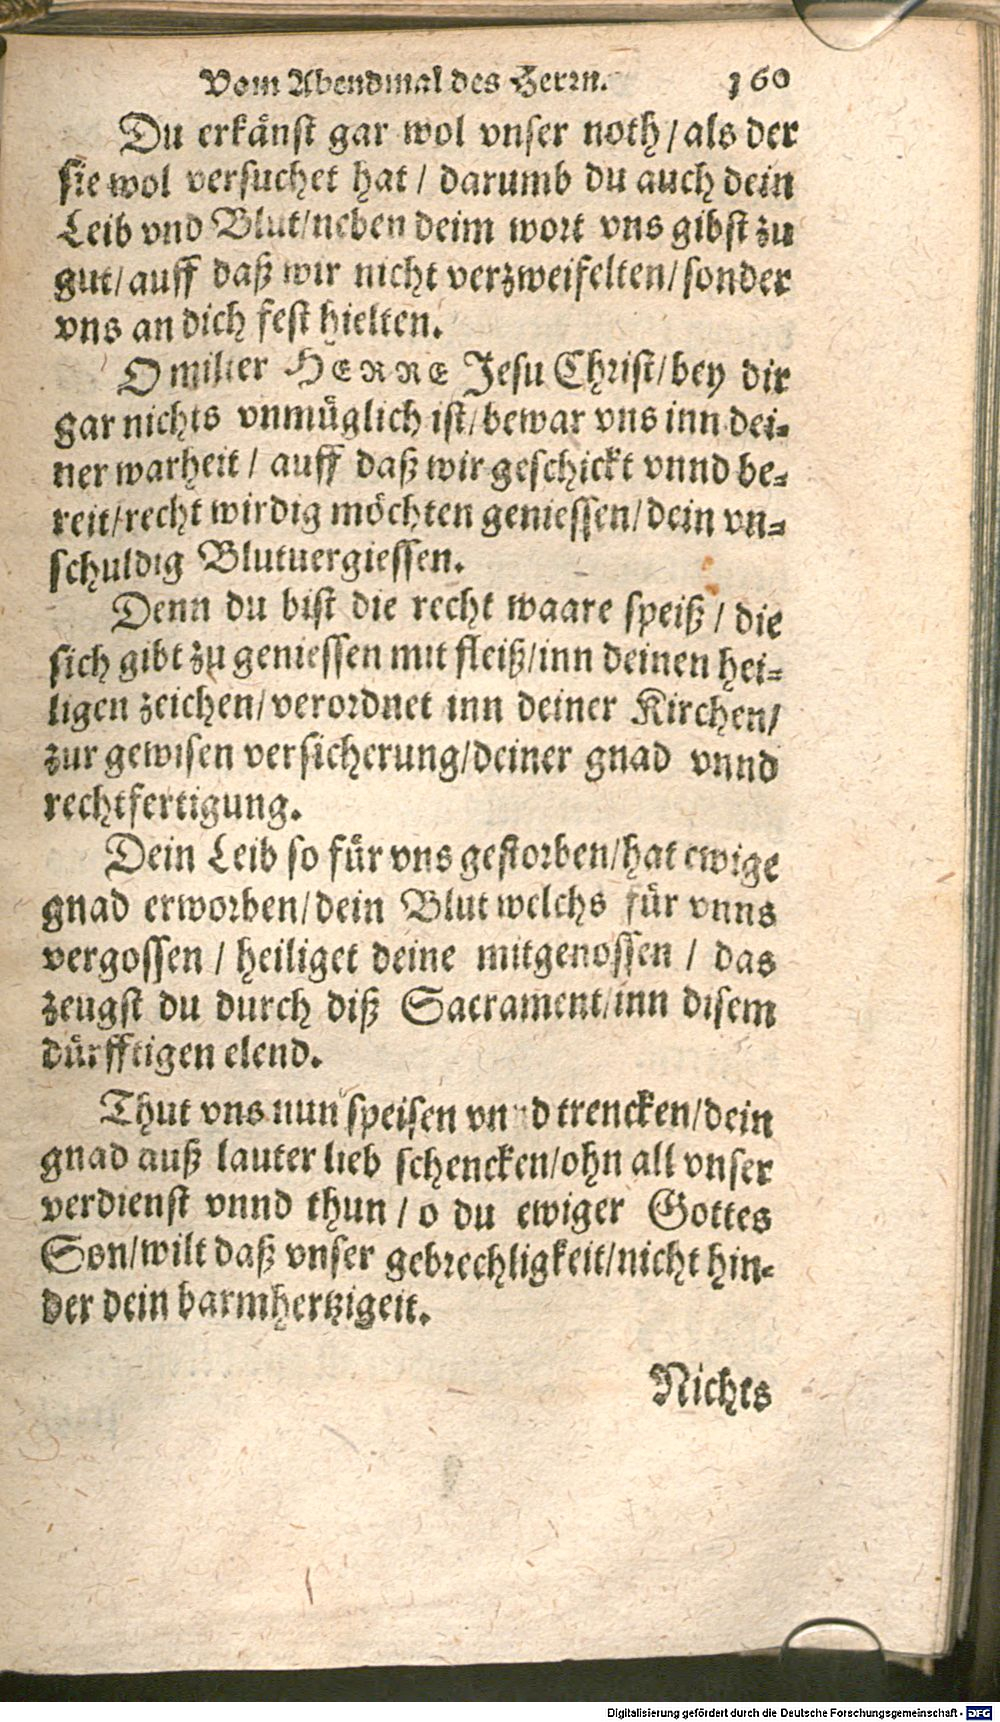 Vom Abendmal des Herrn. 160
Du erkänſt gar wol vnſer noth / als der
ſie wol verſuchet hat / darumb du auch dein
Leib vnd Blut / neben deim wort vns gibſt zu
gut / auff daß wir nicht verzweifelten / ſonder
vns an dich feſt hielten.
O milter HERRE Jeſu Chriſt / bey dir
gar nichts vnmüglich iſt / bewar vns inn dei-
ner warheit / auff daß wir geſchickt vnnd be-
reit / recht wirdig möchten genieſſen / dein vn-
ſchuldig Blutuergieſſen.
Denn du biſt die recht waare ſpeiß / die
ſich gibt zu genieſſen mit fleiß / inn deinen hei-
ligen zeichen / verordnet inn deiner Kirchen /
zur gewiſen verſicherung / deiner gnad vnnd
rechtfertigung.
Dein Leib ſo für vns geſtorben / hat ewige
gnad erworben / dein Blut welchs für vnns
vergoſſen / heiliget deine mitgenoſſen / das
zeugſt du durch diß Sacrament / inn diſem
dürfftigen elend.
Thut vns nun ſpeiſen vnnd trencken / dein
gnad auß lauter lieb ſchencken / ohn all vnſer
verdienſt vnnd thun / o du ewiger Gottes
Son / wilt daß vnſer gebrechligkeit / nicht hin-
der dein barmhertzigeit.
Nichts
Digitalisierung gefördert durch die Deutsche Forschungsgemeinschaft - DFG